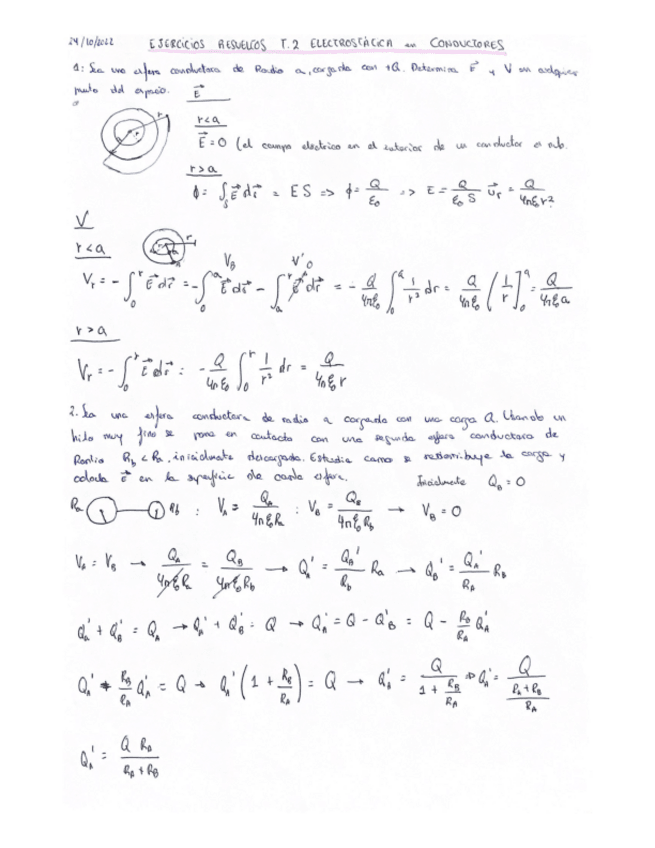 24/10/2022 EJERCICIOS RESUELTOS T.2 ELECTROSTÁTICA en CONDUCTORES
1: Sea una esfera conductora de Radio a, cargada con +Q. Determina E⃗ y V en cualquier
punto del espacio. E⃗
r<a
E⃗=0 (el campo electrico en el interior de un conductor es nulo.
r>a
ϕ= ∫s E⃗ dr⃗ = ES => ϕ= Q/ε₀ => E= Q/(ε₀ S) u⃗r = Q/(4πε₀r²)
V
r<a
V_B V'0
Vr = - ∫₀^r E⃗ dr⃗ = - ∫₀^a E⃗ dr⃗ - ∫a^r E⃗ dr⃗ = - Q/(4πε₀) ∫₀^a 1/r² dr = Q/(4πε₀) (1/r]₀^a = Q/(4πε₀a)
r>a
Vr = - ∫₀^r E⃗ dr⃗ : - Q/(4πε₀) ∫₀^r 1/r² dr = Q/(4πε₀r)
2. Sea una esfera conductora de radio a cargada con una carga Q. Usando un
hilo muy fino se pone en contacto con una segunda esfera conductora de
Radio R_b < R_a, inicialmente descargada. Estudia como se redistribuye la carga y
calcula E⃗ en la superficie de cada esfera. Inicialmente Q_B = 0
Ra Rb : V_A = Q_A/(4πε₀R_a) : V_B = Q_B/(4πε₀R_b) → V_B = 0
V_A = V_B → Q_A/(4πε₀R_a) = Q_B/(4πε₀R_b) → Q_A' = Q_A'/R_b R_a → Q_B' = Q_A'/R_A R_B
Q_a' + Q_B' = Q_A → Q_A' + Q_B' = Q → Q_A' = Q - Q'_B = Q - R_B/R_A Q_A'
Q_A' + R_B/R_A Q_A' = Q → Q_A' (1 + R_B/R_A) = Q → Q_A' = Q/(1 + R_B/R_A) => Q_A' = Q/((R_A + R_B)/R_A)
Q_A' = Q R_A/(R_A + R_B)